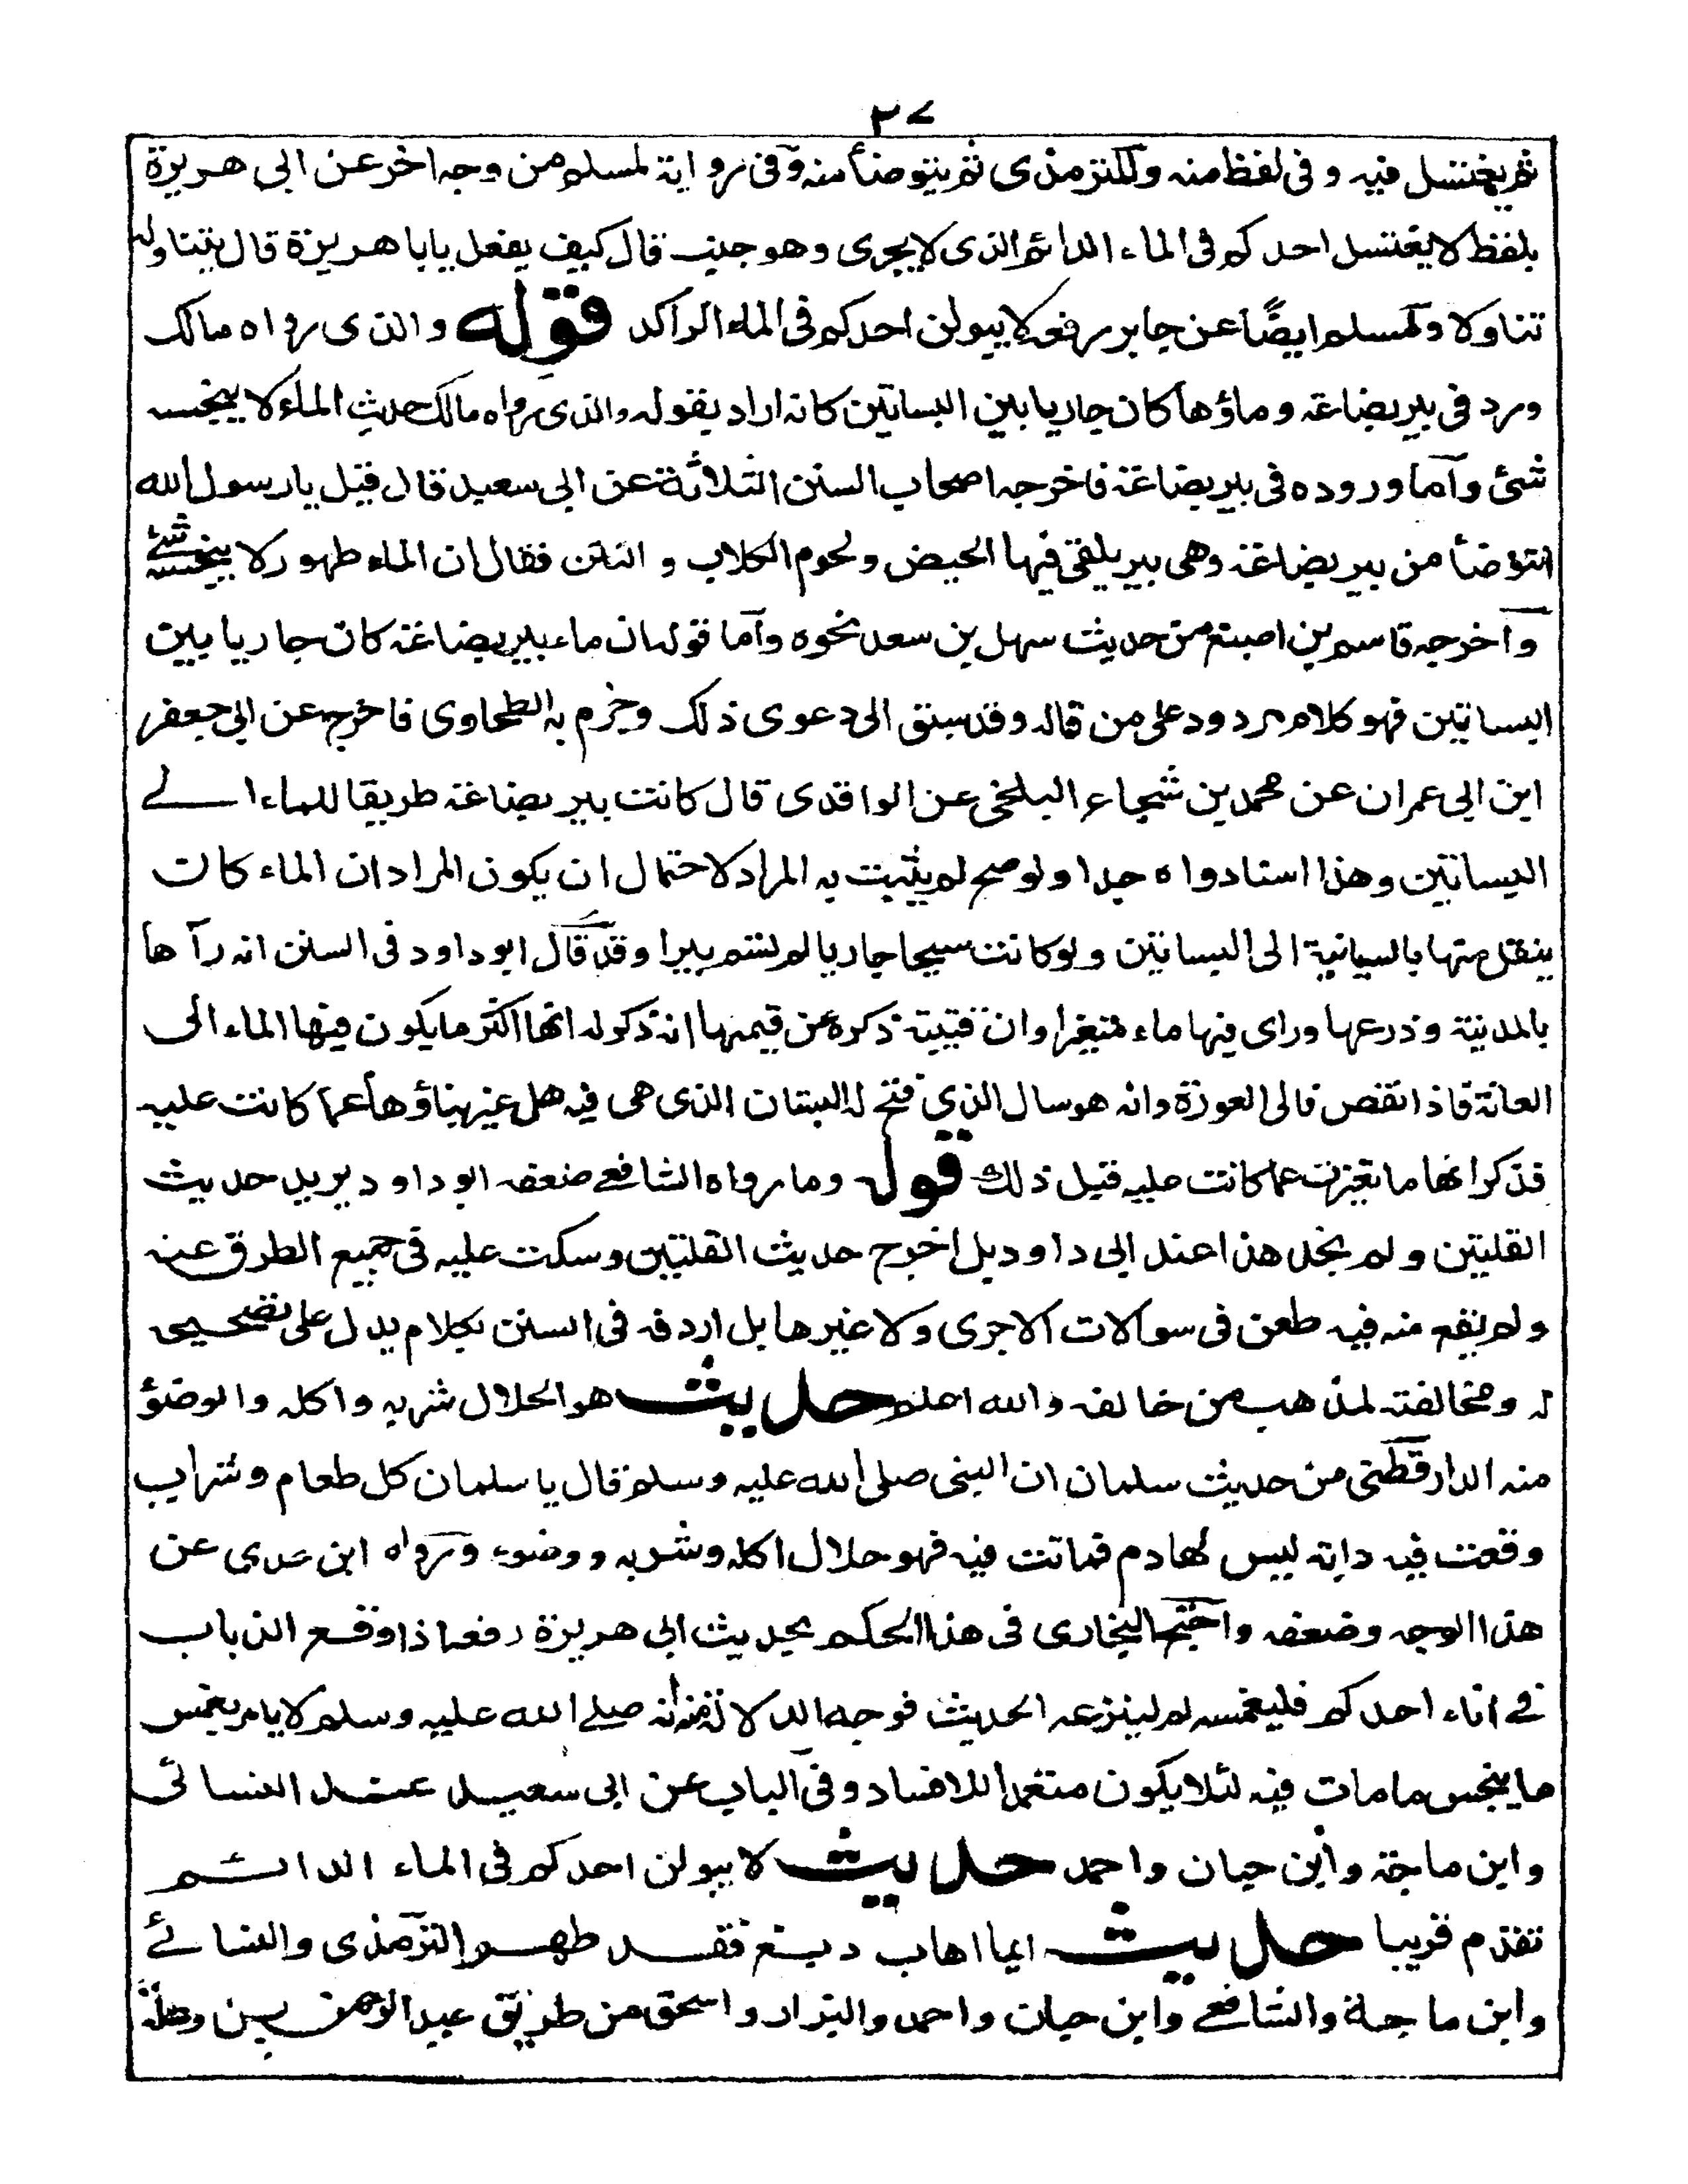 ٢٧
ثم يغتسل فيه و فى لفظ منه وللترمذى ثم يتوضأ منه وفى رواية لمسلم من وجه اخر عن ابى هريرة
بلفظ لا يغتسل احدكم فى الماء الدائم الذى لا يجرى وهو جنب قال كيف يفعل يابا هريرة قال يتناوله
تناولا ولمسلم ايضًا عن جابر رفعه لا يبولن احدكم فى الماء الراكد قوله والذى رواه مالك
ورد فى بير بضاعة وماؤها كان جاريا بين البساتين كانه اراد بقوله والذى رواه مالك حديث الماء لا ينجسه
شئ وآما وروده فى بير بضاعة فاخرجه اصحاب السنن الثلاثة عن ابى سعيد قال قيل يا رسول الله
انتوضأ من بير بضاعة وهى بير يلقى فيها الحيض ولحوم الكلاب و النتن فقال ان الماء طهور لا ينجسه شئ
وآخرجه قاسم بن اصبغ من حديث سهل بن سعد نحوه وآما قوله ان ماء بير بضاعة كان جاريا بين
البساتين فهو كلام مردود على من قاله وقد سبق الى دعوى ذلك وجزم به الطحاوى فاخرجه عن ابى جعفر
ابن ابى عمران عن محمد بن شجاع البلخى عن الواقدى قال كانت بير بضاعة طريقا للماء الے
البساتين وهذا اسناد واه جدا ولو صح لم يثبت به المراد لاحتمال ان يكون المراد ان الماء كان
ينقل منها بالسانية الى البساتين ولو كانت سيحا جاريا لم تسم بيرا وقد قال ابو داود فى السنن انه رآها
بالمدينة وذرعها وراى فيها ماء متغيرا وان قتيبة ذكره عن قيمها انه ذكر له انها اكثر ما يكون فيها الماء الى
العانة فاذا نقص فالى العورة وانه هو سال الذي فتح له البستان الذى هى فيه هل غير بناؤها عما كانت عليه
فذكر انها ما تغيرت عما كانت عليه قبل ذلك قوله وما رواه الشافعے ضعفه ابو داود يريد حديث
القلتين ولم نجد هذا عند ابى داود بل اخرج حديث القلتين وسكت عليه فى جميع الطرق عنه
ولم يقع منه فيه طعن فى سوالات الاجرى ولا غيرها بل اردفه فى السنن بكلام يدل على تصحيحه
له ومخالفته لمذهب من خالفه والله اعلم حديث هو الحلال شربه واكله والوضؤ
منه الدارقطنى من حديث سلمان ان النبى صلى الله عليه وسلم قال يا سلمان كل طعام وشراب
وقعت فيه دابة ليس لها دم فماتت فيه فهو حلال اكله وشربه ووضوء ورواه ابن عدى عن
هذا الوجه وضعفه واحتج البخارى فى هذا الحكم بحديث ابى هريرة رفعه اذا وقع الذباب
فے اناء احدكم فليغمسه ثم لينزعه الحديث فوجه الدلالة منه انه صلے الله عليه وسلم لا يامر بغمس
ما ينجس ما مات فيه لئلا يكون متعمدا للافساد وفى الباب عن ابى سعيد عند النسائى
وابن ماجة وابن حبان واحمد حديث لا يبولن احدكم فى الماء الدائم
تقدم قريبا حديث ايما اهاب دبغ فقد طهر الترمذى والنسائے
وابن ماجة والشافعے وابن حبان واحمد والبزار واسحق من طريق عبد الرحمن بن وعلة